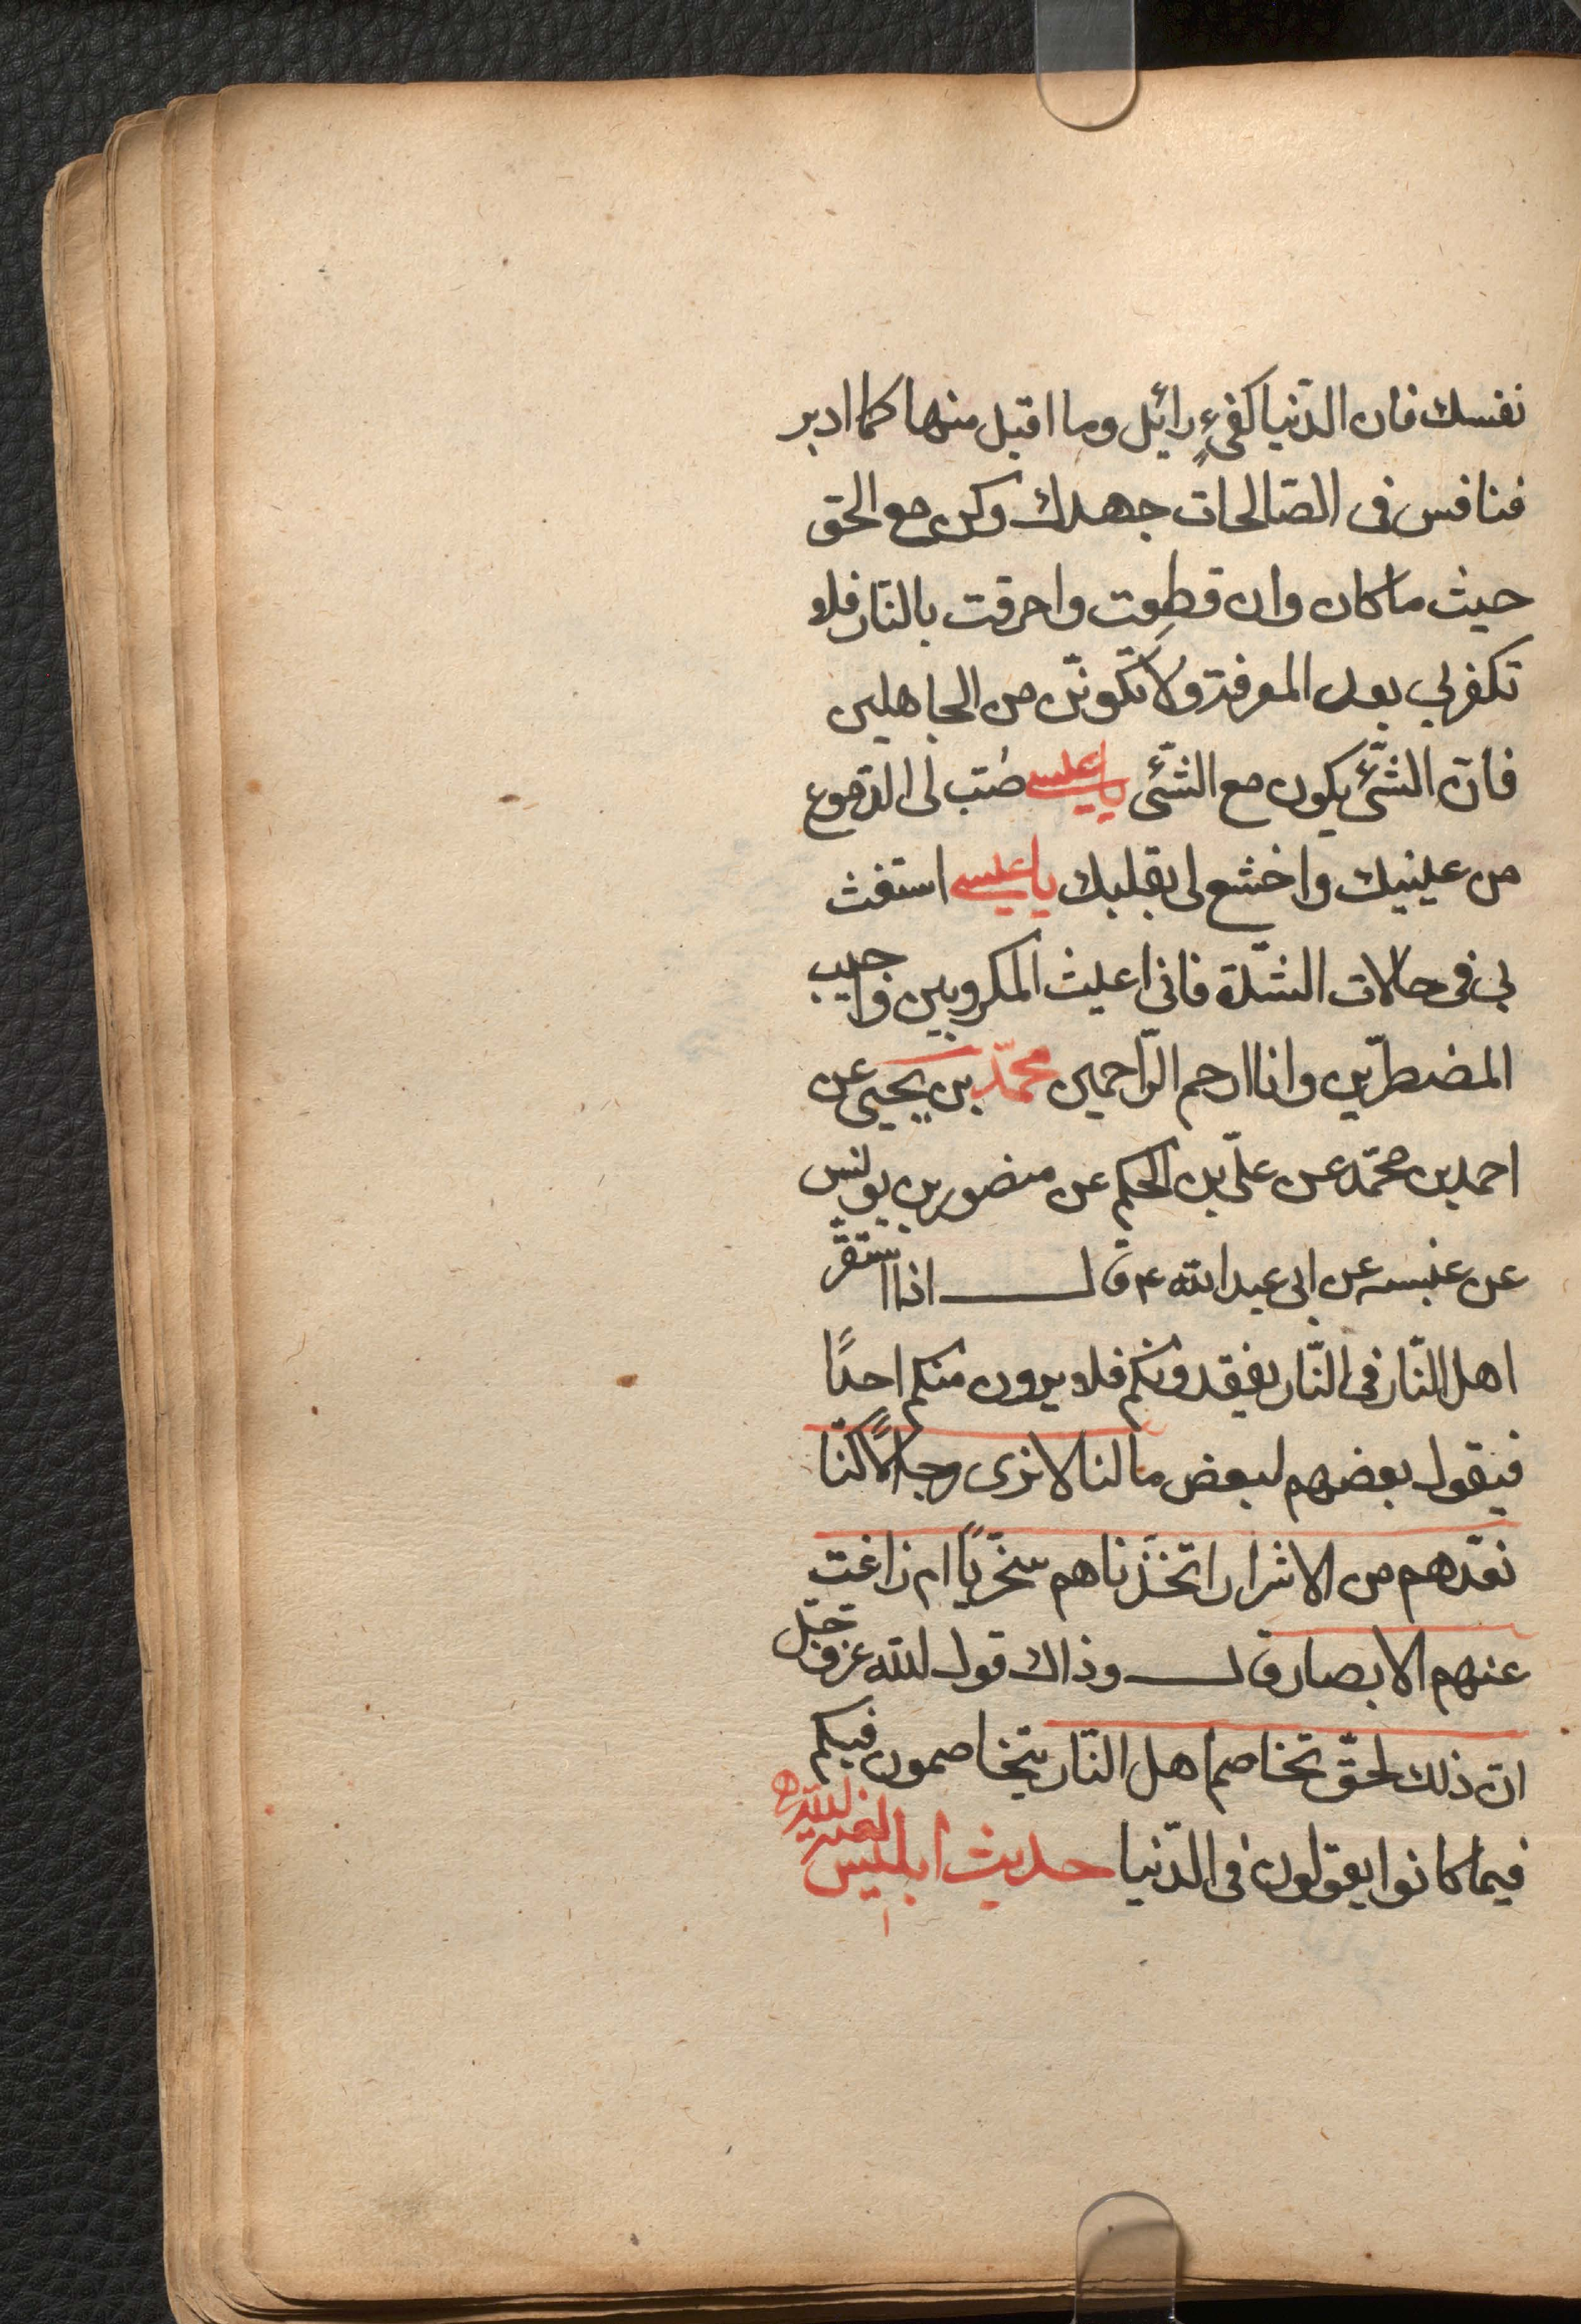 نفسك فان الدّنيا كفىءٍ زائل وما اقبل منها كما ادبر
فنافس فى الصّالحات جهدك وكن مع الحق
حيث ما كان وان قطعت واحرقت بالنّار فلا
تكفر بي بعد المعرفة ولا تكوننّ من الجاهلين
فانّ الشّئ يكون مع الشّئ يا عيسى صُبّ لى الدّموع
من عينيك واخشع لى بقلبك يا عيسى استغث
بي فى حالات الشّدة فانى اغيث المكروبين واجيب
المضطرّين وانا ارحم الرّاحمين محمّد بن يحيى عن
احمد بن محمّد عن علىّ بن الحكم عن منصور بن يونس
عن عنبسه عن ابى عبد الله ع قال اذا استقرّ
اهل النّار فى النّار يفقدونكم فلا يرون منكم احدًا
فيقول بعضهم لبعض ما لنا لا نرى رجالًا كنّا
نعدّهم من الاشرار اتخذناهم سخريًّا ام زاغت
عنهم الابصار قال وذاك قول الله عز وجلّ
انّ ذلك لحقّ تخاصم اهل النّار يتخاصمون فيكم
فيما كانوا يقولون فى الدّنيا حديث ابليس لعنه الله